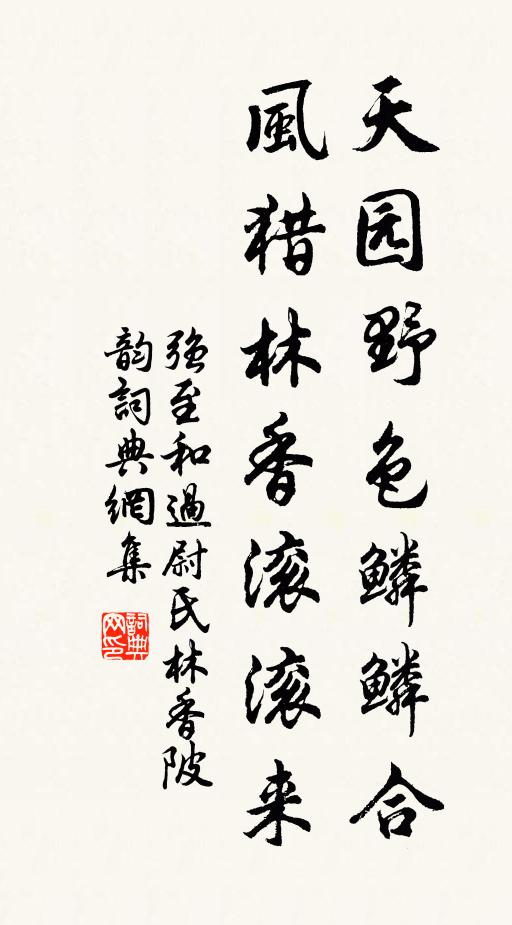 天园野色鳞鳞合
風猎林香滚滚来
强至和過尉氏林香陂
韵詞典網集
詞典网印